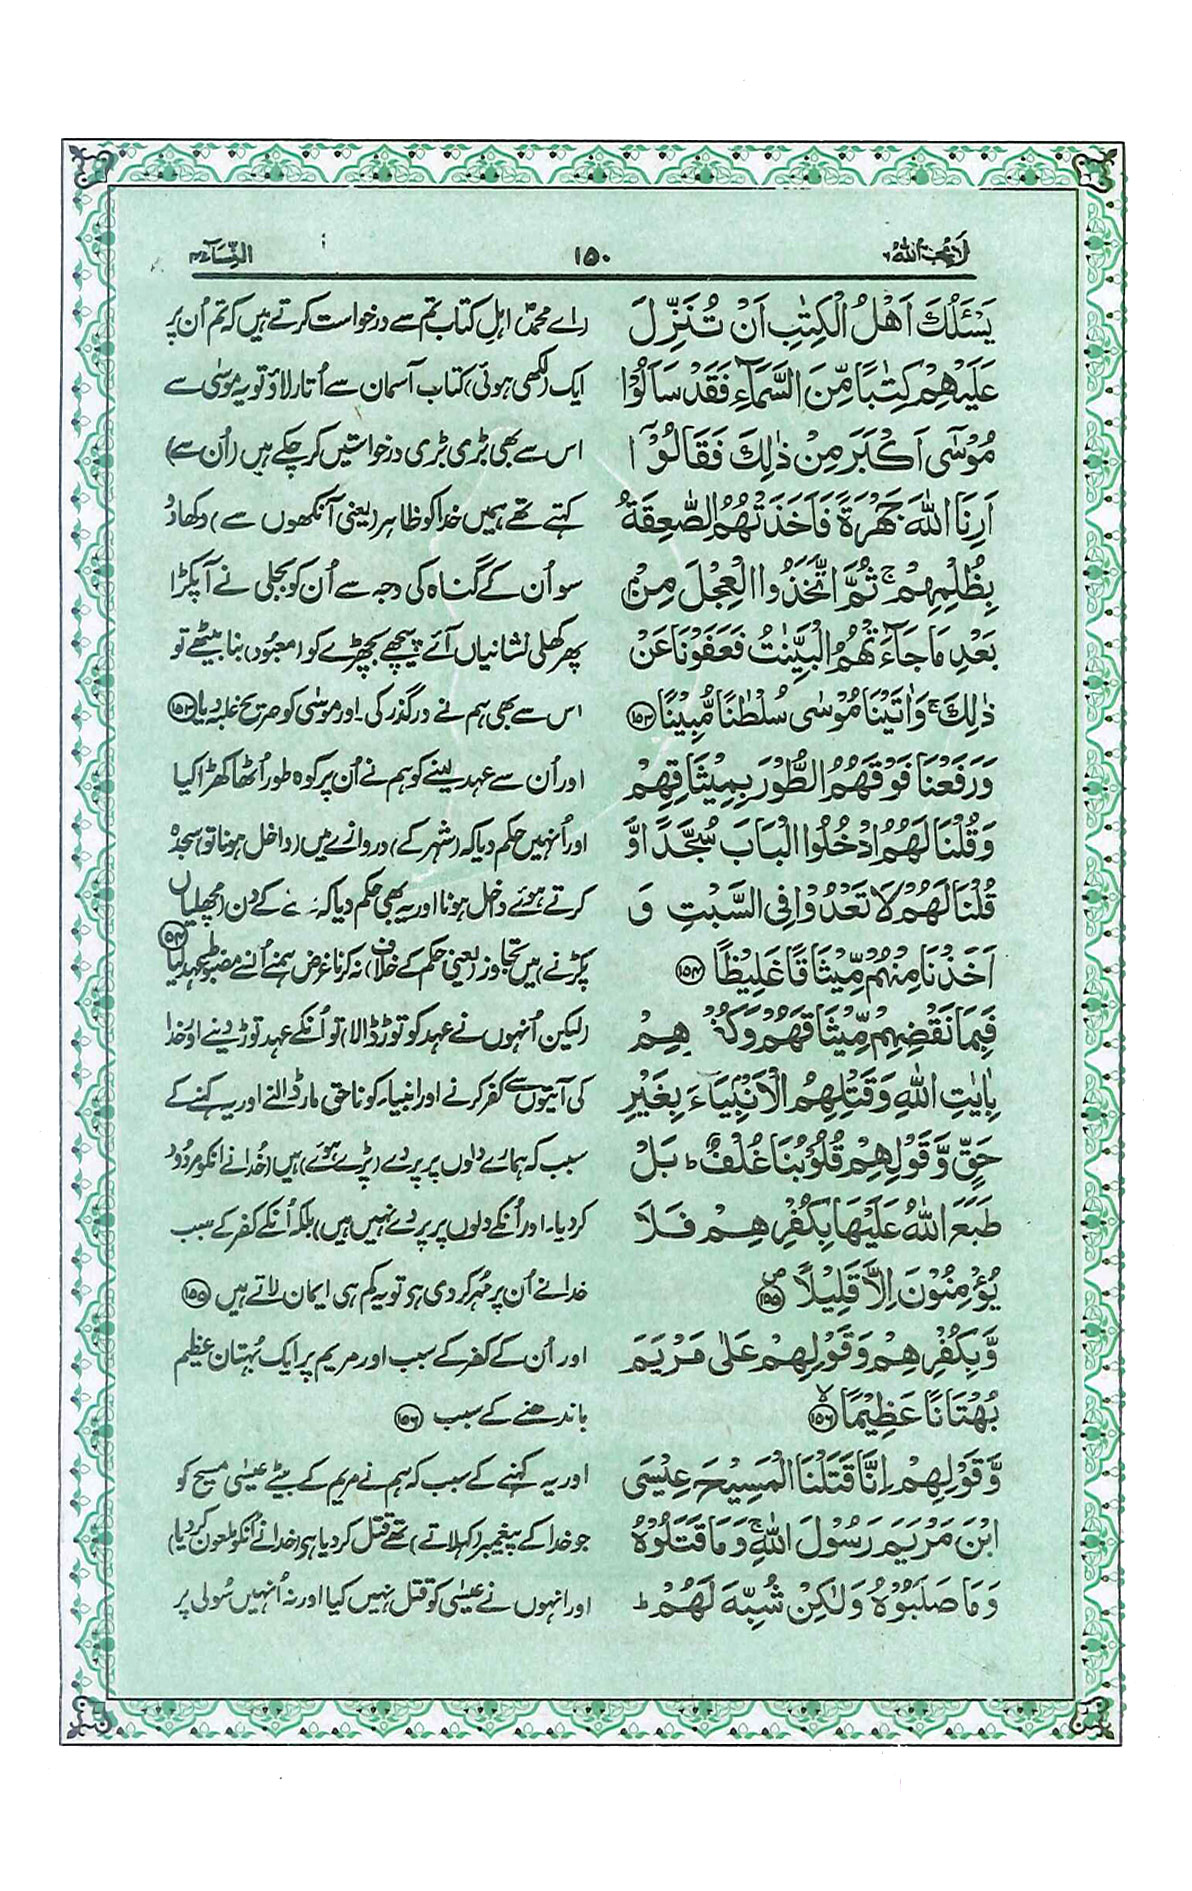 لَا یُحِبُّ اللّٰهُ ٦
١٥٠
النِّسَآء ٤
یَسْـَٔلُكَ اَهْلُ الْكِتٰبِ اَنْ تُنَزِّلَ
عَلَیْهِمْ كِتٰبًا مِّنَ السَّمَآءِ فَقَدْ سَاَلُوْا
مُوْسٰۤى اَكْبَرَ مِنْ ذٰلِكَ فَقَالُوْۤا
اَرِنَا اللّٰهَ جَهْرَةً فَاَخَذَتْهُمُ الصّٰعِقَةُ
بِظُلْمِهِمْ ۚ ثُمَّ اتَّخَذُوا الْعِجْلَ مِنْۢ
بَعْدِ مَا جَآءَتْهُمُ الْبَیِّنٰتُ فَعَفَوْنَا عَنْ
ذٰلِكَ ۚ وَاٰتَیْنَا مُوْسٰى سُلْطٰنًا مُّبِیْنًا ﴿١٥٣﴾
وَرَفَعْنَا فَوْقَهُمُ الطُّوْرَ بِمِیْثَاقِهِمْ
وَقُلْنَا لَهُمُ ادْخُلُوا الْبَابَ سُجَّدًا وَّ
قُلْنَا لَهُمْ لَا تَعْدُوْا فِی السَّبْتِ وَ
اَخَذْنَا مِنْهُمْ مِّیْثَاقًا غَلِیْظًا ﴿١٥٤﴾
فَبِمَا نَقْضِهِمْ مِّیْثَاقَهُمْ وَكُفْرِهِمْ
بِاٰیٰتِ اللّٰهِ وَقَتْلِهِمُ الْاَنْۢبِیَآءَ بِغَیْرِ
حَقٍّ وَّقَوْلِهِمْ قُلُوْبُنَا غُلْفٌ ؕ بَلْ
طَبَعَ اللّٰهُ عَلَیْهَا بِكُفْرِهِمْ فَلَا
یُؤْمِنُوْنَ اِلَّا قَلِیْلًا ﴿١٥٥﴾
وَّبِكُفْرِهِمْ وَقَوْلِهِمْ عَلٰى مَرْیَمَ
بُهْتَانًا عَظِیْمًا ﴿١٥٦﴾
وَّقَوْلِهِمْ اِنَّا قَتَلْنَا الْمَسِیْحَ عِیْسَى
ابْنَ مَرْیَمَ رَسُوْلَ اللّٰهِ ۚ وَمَا قَتَلُوْهُ
وَمَا صَلَبُوْهُ وَلٰكِنْ شُبِّهَ لَهُمْ ؕ
(اے محمدؐ) اہل کتاب تم سے درخواست کرتے ہیں کہ تم اُن پر
ایک (لکھی ہوئی) کتاب آسمان سے اُتار لاؤ تو یہ موسٰی سے
اس سے بھی بڑی بڑی درخواستیں کر چکے ہیں (اُن سے)
کہتے تھے ہمیں خدا کو ظاہر (یعنی آنکھوں سے) دکھا دو
سو اُن کے گناہ کی وجہ سے اُن کو بجلی نے آ پکڑا
پھر کھلی نشانیاں آئے پیچھے بچھڑے کو (معبود) بنا بیٹھے تو
اس سے بھی ہم نے درگذر کی۔ اور موسٰی کو صریح غلبہ دیا (١٥٣)
اور اُن سے عہد لینے کو ہم نے اُن پر کوہ طور اُٹھا کھڑا کیا
اور اُنہیں حکم دیا کہ (شہر کے) دروازے میں (داخل ہونا تو) سجدہ
کرتے ہوئے داخل ہونا اور یہ بھی حکم دیا کہ کے دن (مچھلیاں
پکڑنے) میں تجاوز (یعنی حکم کے خلاف) نہ کرنا غرض ہمنے اُنسے مضبوط عہد لیا (١٥٤)
(لیکن اُنہوں نے عہد کو توڑ ڈالا) تو اُنکے عہد توڑ دینے اور خدا
کی آیتوں سے کفر کرنے اور انبیاء کو ناحق مار ڈالنے اور یہ کہنے کے
سبب کہ ہمارے دلوں پر پردے (پڑے ہوئے) ہیں (خدا نے انکو مردود
کر دیا۔ اور اُنکے دلوں پر پردے نہیں ہیں) بلکہ اُنکے کفر کے سبب
خدا نے اُن پر مُہر کر دی ہے تو یہ کم ہی ایمان لاتے ہیں (١٥٥)
اور اُن کے کفر کے سبب اور مریم پر ایک بُہتان عظیم
باندھنے کے سبب (١٥٦)
اور یہ کہنے کے سبب کہ ہم نے مریم کے بیٹے عیسٰی مسیح کو
جو خدا کے پیغمبر (کہلاتے) تھے قتل کر دیا ہے (خدا نے اُنکو ملعون کر دیا)
اور انہوں نے عیسٰی کو قتل نہیں کیا اور نہ اُنہیں سُولی پر